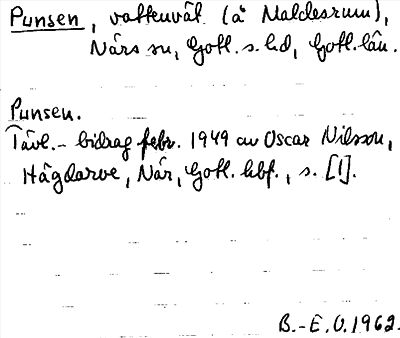 Punsen, vattenväl. (å Maldesrum),
Närs sn, Gotl. s. hd, Gotl. län.
Punsen.
Tävl.- bidrag febr. 1949 av Oscar Nilsson,
Hägdarve, När, Gotl. hbf., s. [1].
B.-E.O.1962.